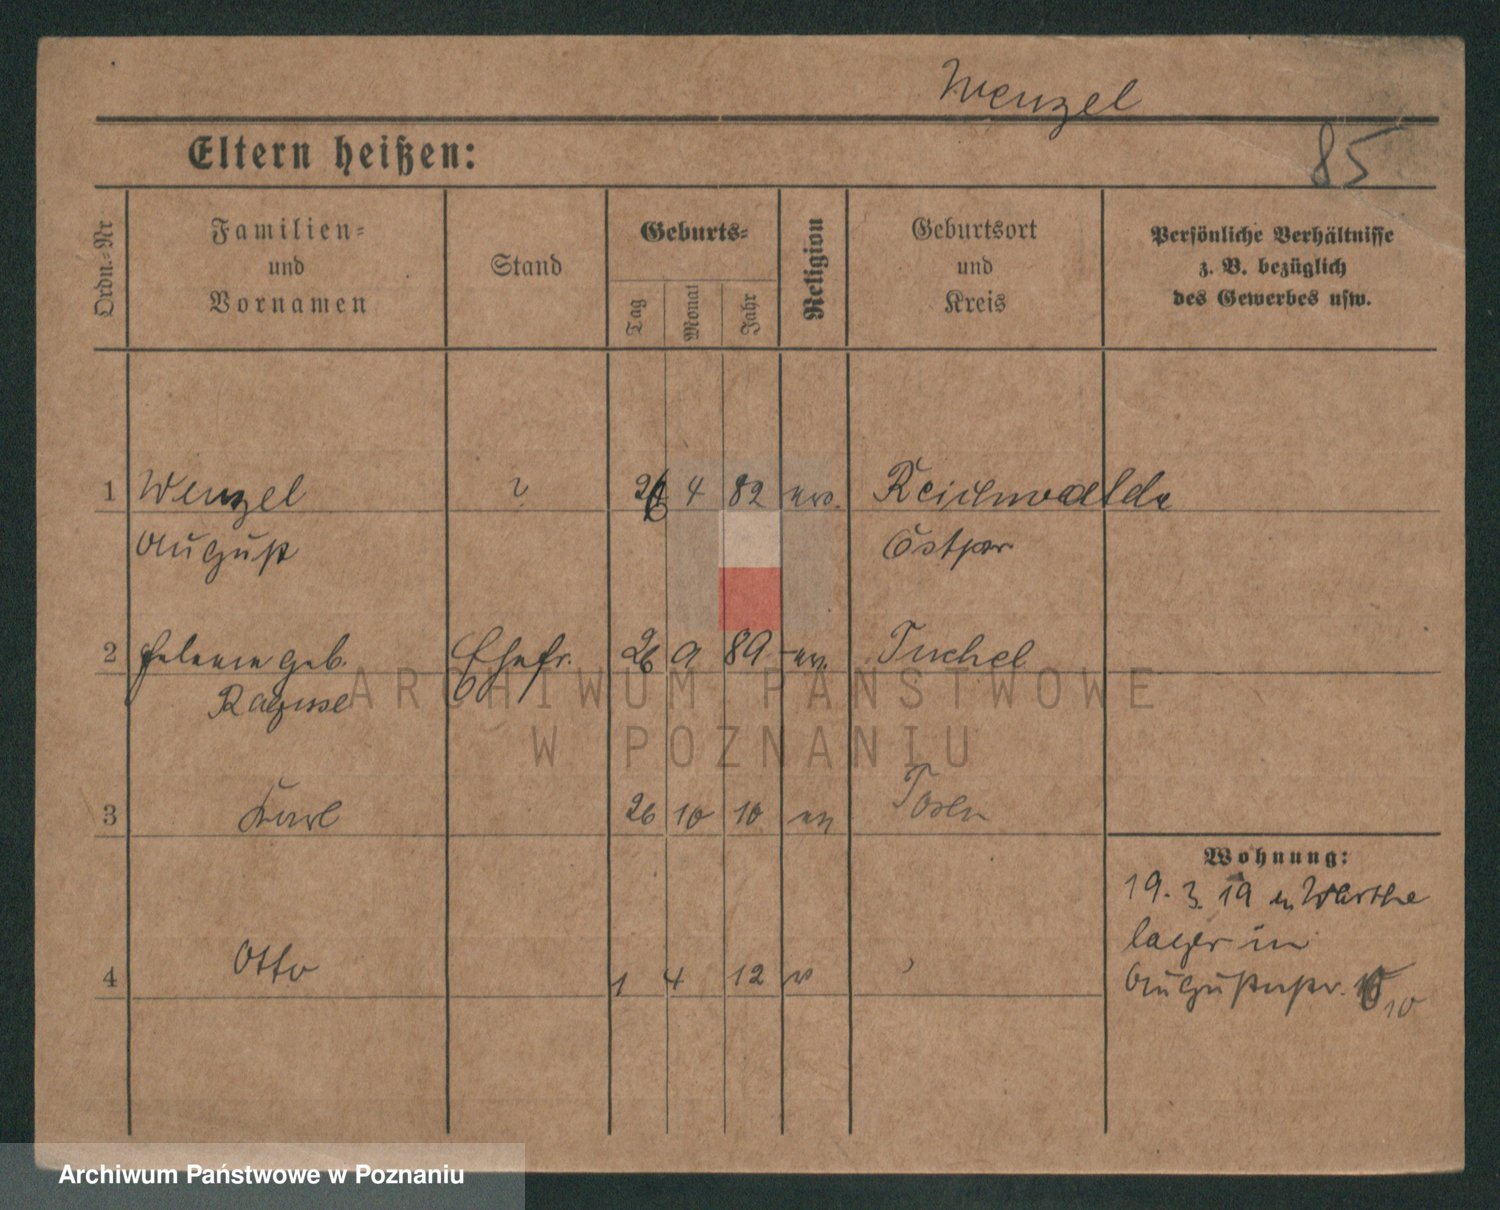 Wenzel
85
Eltern heißen:
Ordn.=Nr
Familien=
und
Vornamen
Stand
Geburts=
Tag
Monat
Jahr
Religion
Geburtsort
und
Kreis
Persönliche Verhältnisse
z. B. bezüglich
des Gewerbes usw.
1 Wenzel ? 26 4 82 Reichwalde
August Ostpr
2 geb. Ehefr. 26 9 89 ev. Tuchel
3 Karl 26 10 10 ev Posen
Wohnung:
19. 3. 19 Warthe
lager in
Augustastr. 10
4 Otto 1 4 12
ARCHIWUM PAŃSTWOWE
W POZNANIU
Archiwum Państwowe w Poznaniu